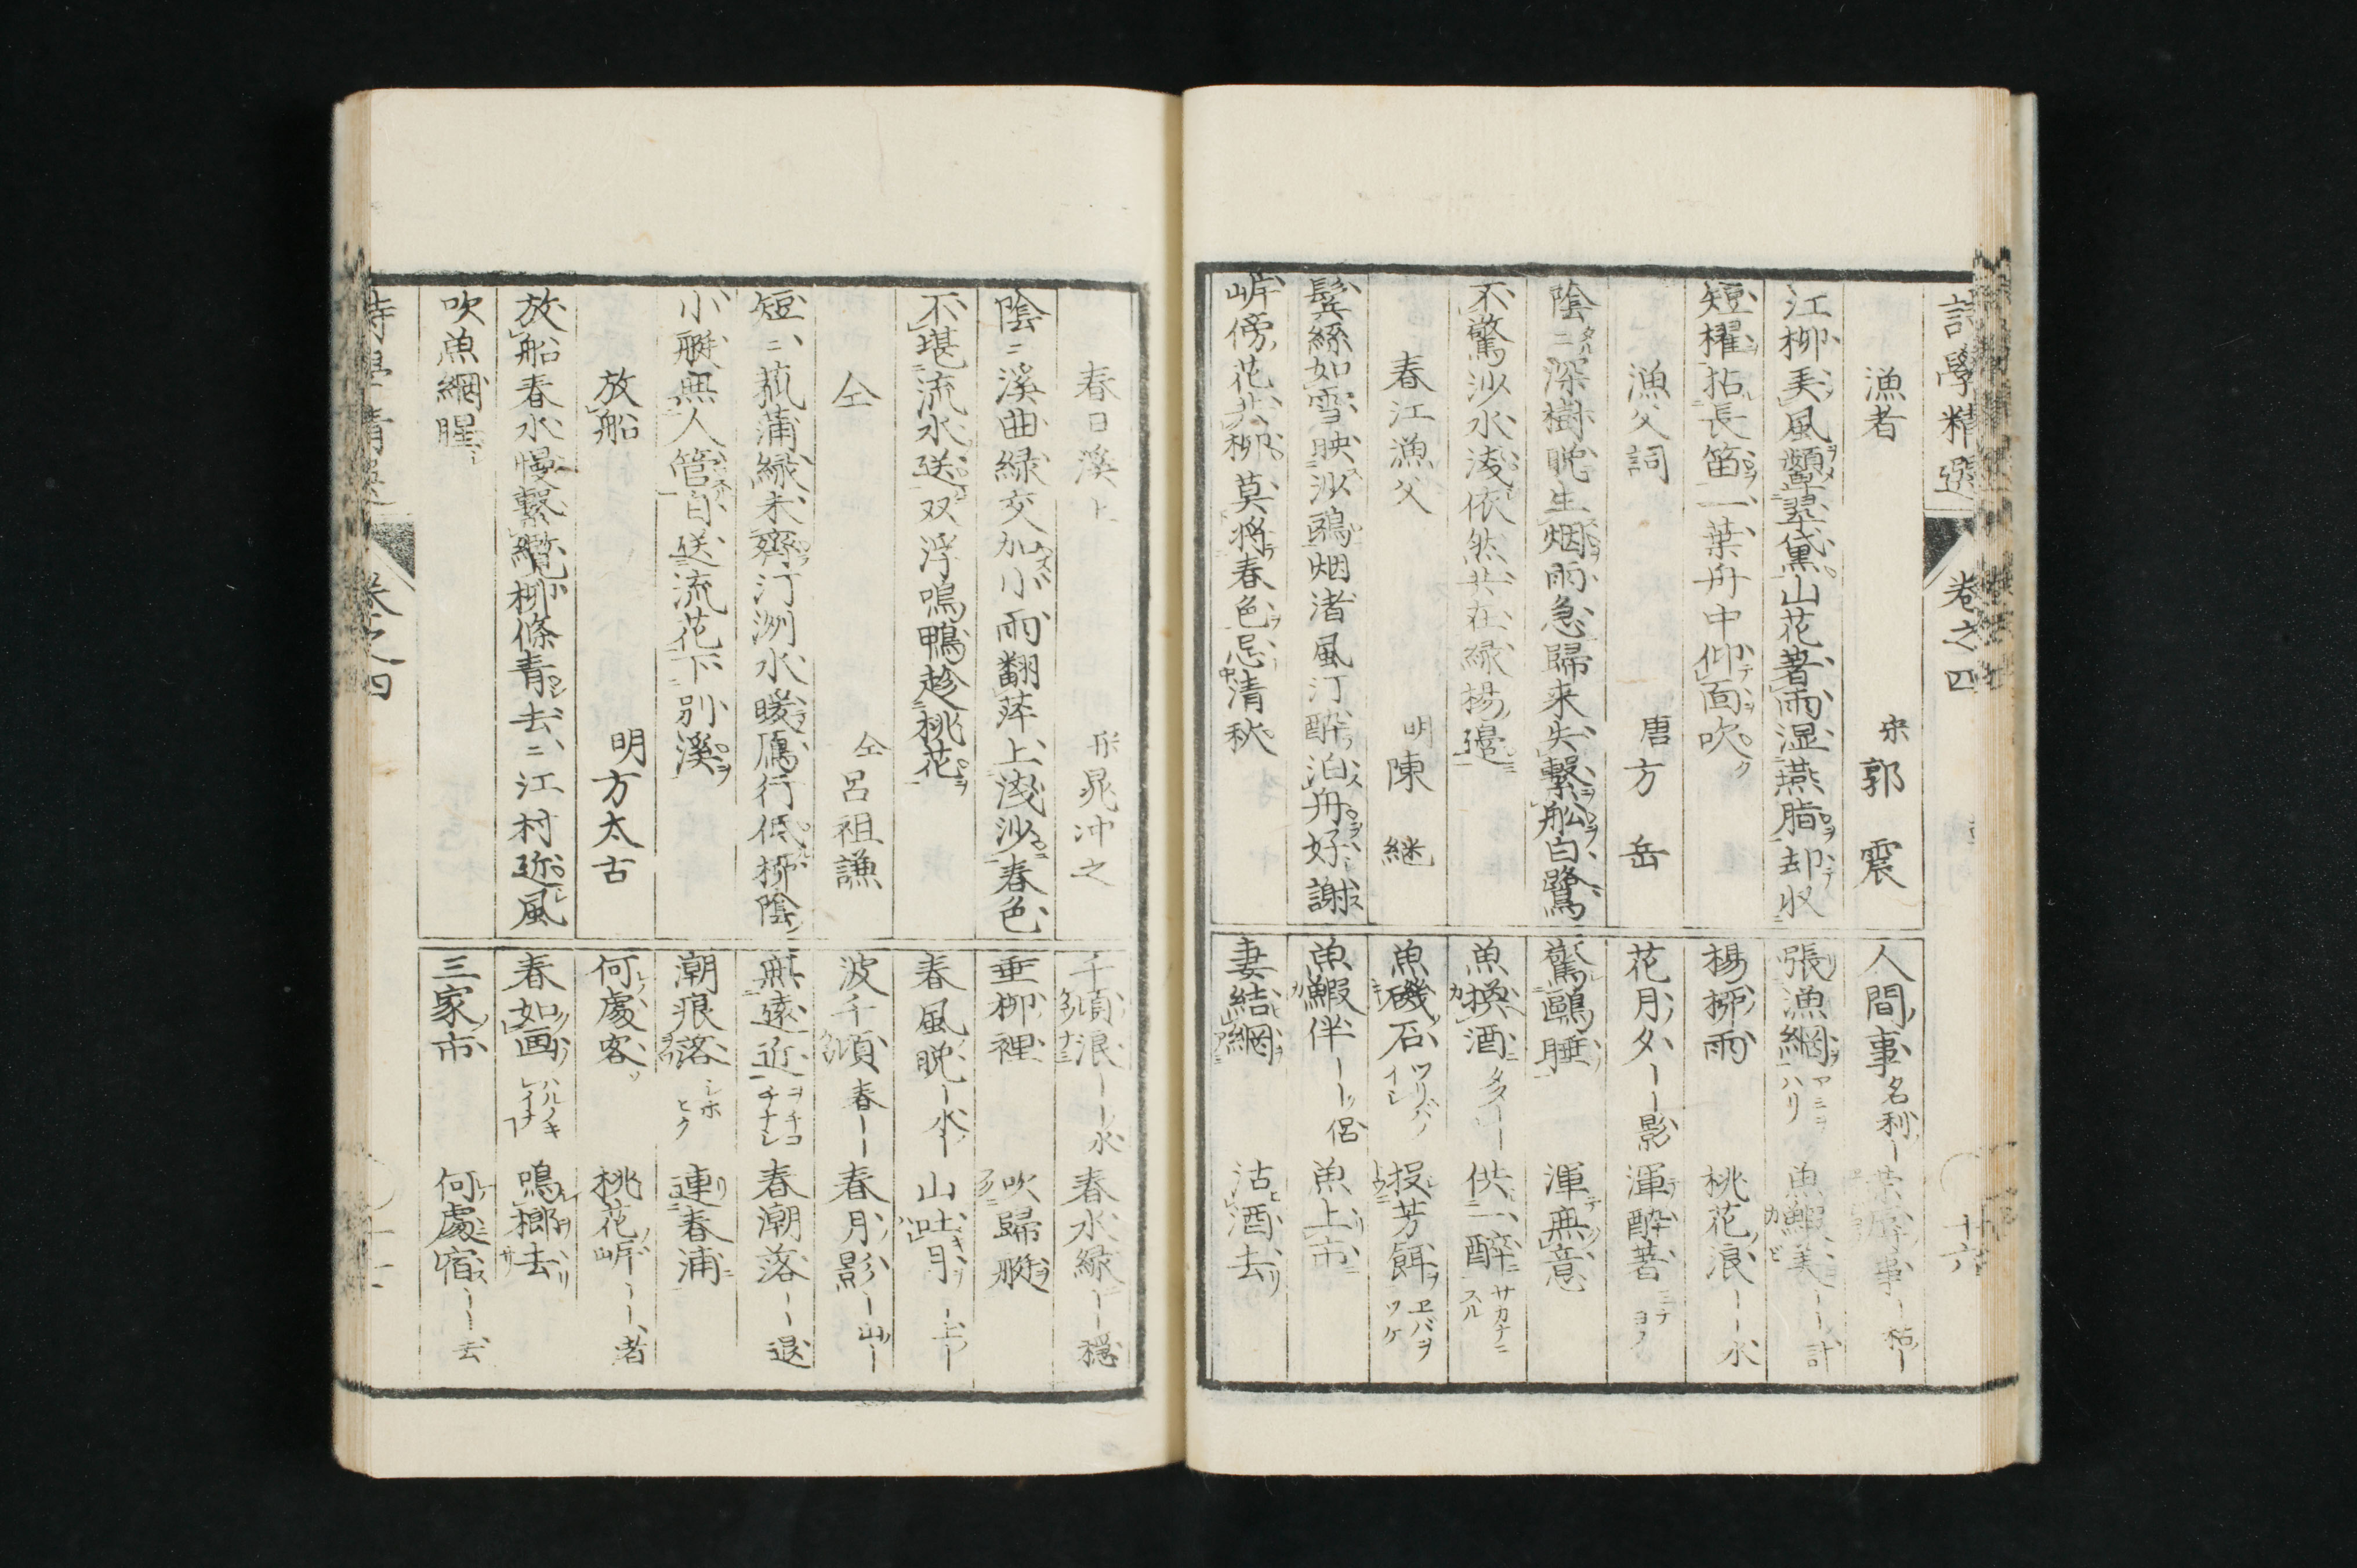 詩學精選 卷之四 十六
漁者 宋 郭震
江柳美風顰翠黛山花著雨湿燕脂却収
短櫂拈長笛一葉舟中仰面吹
漁父詞 唐 方岳
陰ニ深樹晩生烟雨急歸来失繋舩白鷺
不驚沙水浅依然共在緑楊邉
春江漁父 明 陳継
鬂絲如雪映沙鷗烟渚風汀酔泊舟好謝
岸傍花共柳莫将春色忌清秋
人間事 名利ーー
張漁網 魚鰕美ーー計
楊柳雨 桃花浪ーー水
花月夕ーー影 渾酔著
驚鷗睡 渾無意
魚換酒 供一酔 サカナニスル
魚磯石 ツリバノイシ 投芳餌 ヱバヲツケ
魚鰕伴ーー侶 魚上市
妻結網 沽酒去
春日溪上 晁冲之
陰ニ溪曲緑交加小雨翻萍上浅沙春色
不堪流水送双浮鳴鴨趁桃花
仝 仝 呂祖謙
短ニ菰蒲緑未齊汀洲水暖鴈行低柳陰
小艇無人管自送流花下別溪
放船 明 方太古
放船春水慢繋纜柳條青去ニ江村近風
吹魚網腥
千頃浪ーー水 春水緑ーー穏
垂柳裡 吹歸艇
春風晩ー水ー 山吐月ー上ー
波千頃 春ーー 春月影ー山ー
無遠近 ヲチコチナシ 春潮落ーー退
潮痕落 シホヒク 連春浦
何處客 桃花岸ーー者
春如画 鳴榔去
三家市 何處宿ーー去
詩學精選 卷之四